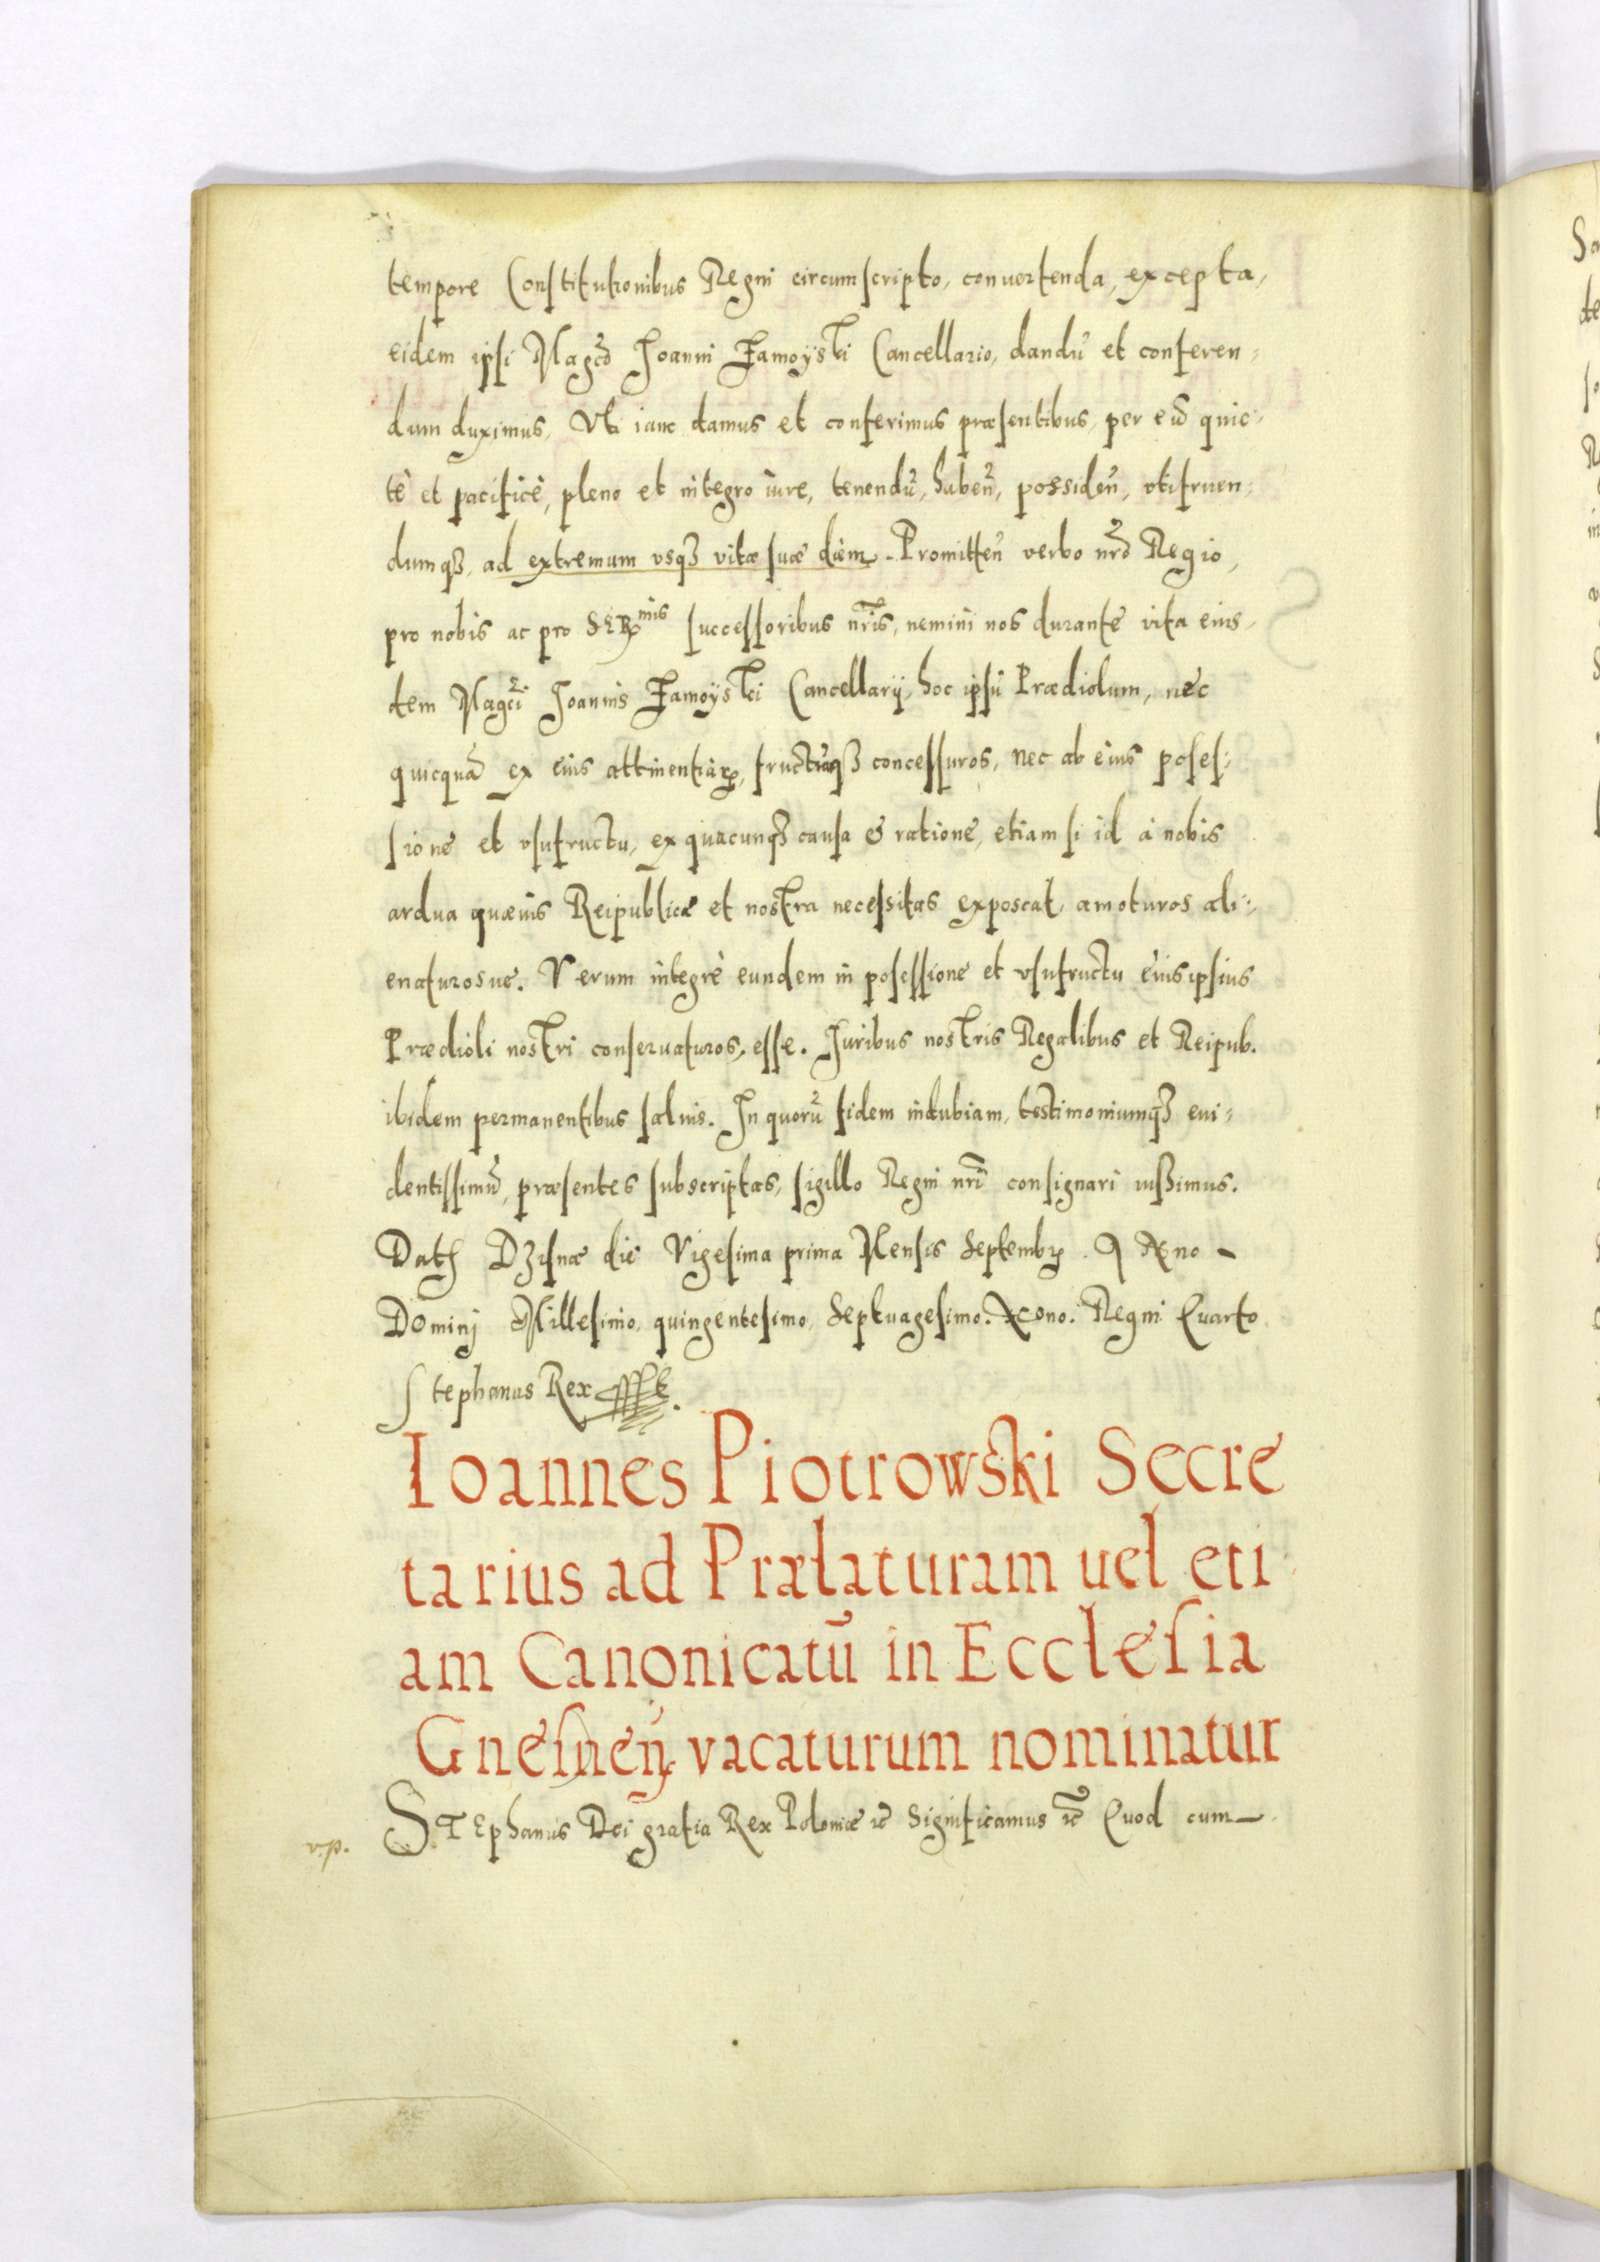 tempore Constitutionibus Regni circumscripto, conuertenda, excepta,
eidem ipsi Magco Joanni Zamoyski Cancellario, dandū et conferen-
dum duximus, Vti ianc damus et conferimus præsentibus, per eū quie-
tè et pacificè, pleno et integro iure, tenendū, haben̄, possiden̄, vtifruen-
dumqȝ, ad extremum vsqȝ vitæ suæ diem. Promitten̄ verbo nr̄o Regio,
pro nobis ac pro SERmis successoribus nr̄is, nemini nos durante vita eius-
dem Magci Joannis Zamoyski Cancellarij, hoc ipsū Prædiolum, nec
quicquā ex eius attinentiarꝝ, fructūqȝ concessuros, nec ab eius poses-
sione et vsufructu, ex quacunqȝ causa & ratione, etiam si id à nobis
ardua quæuis Reipublicæ et nostra necessitas exposcat, amoturos ali-
enaturosue. Verum integrè eundem in posessione et vsufructu eius ipsius
Prædioli nostri conseruaturos, esse. Juribus nostris Regalibus et Reipub.
ibidem permanentibus saluis. In quorū fidem indubiam, testimoniumqȝ eui-
dentissimū, præsentes subscriptas, sigillo Regni nr̄i consignari iussimus.
Dat Dzisnæ die Vigesima prima Mensis Septembꝝ. Anno
Dominj Millesimo, quingentesimo, Septuagesimo. Nono. Regni Quarto
Stephanus Rex
Ioannes Piotrowski Secre
tarius ad Prælaturam uel eti
am Canonicatū in Ecclesia
Gnesnen̄ vacaturum nominatur
v.p. STEphanus Dei gratia Rex Poloniæ &c Significamus &c Quod cum